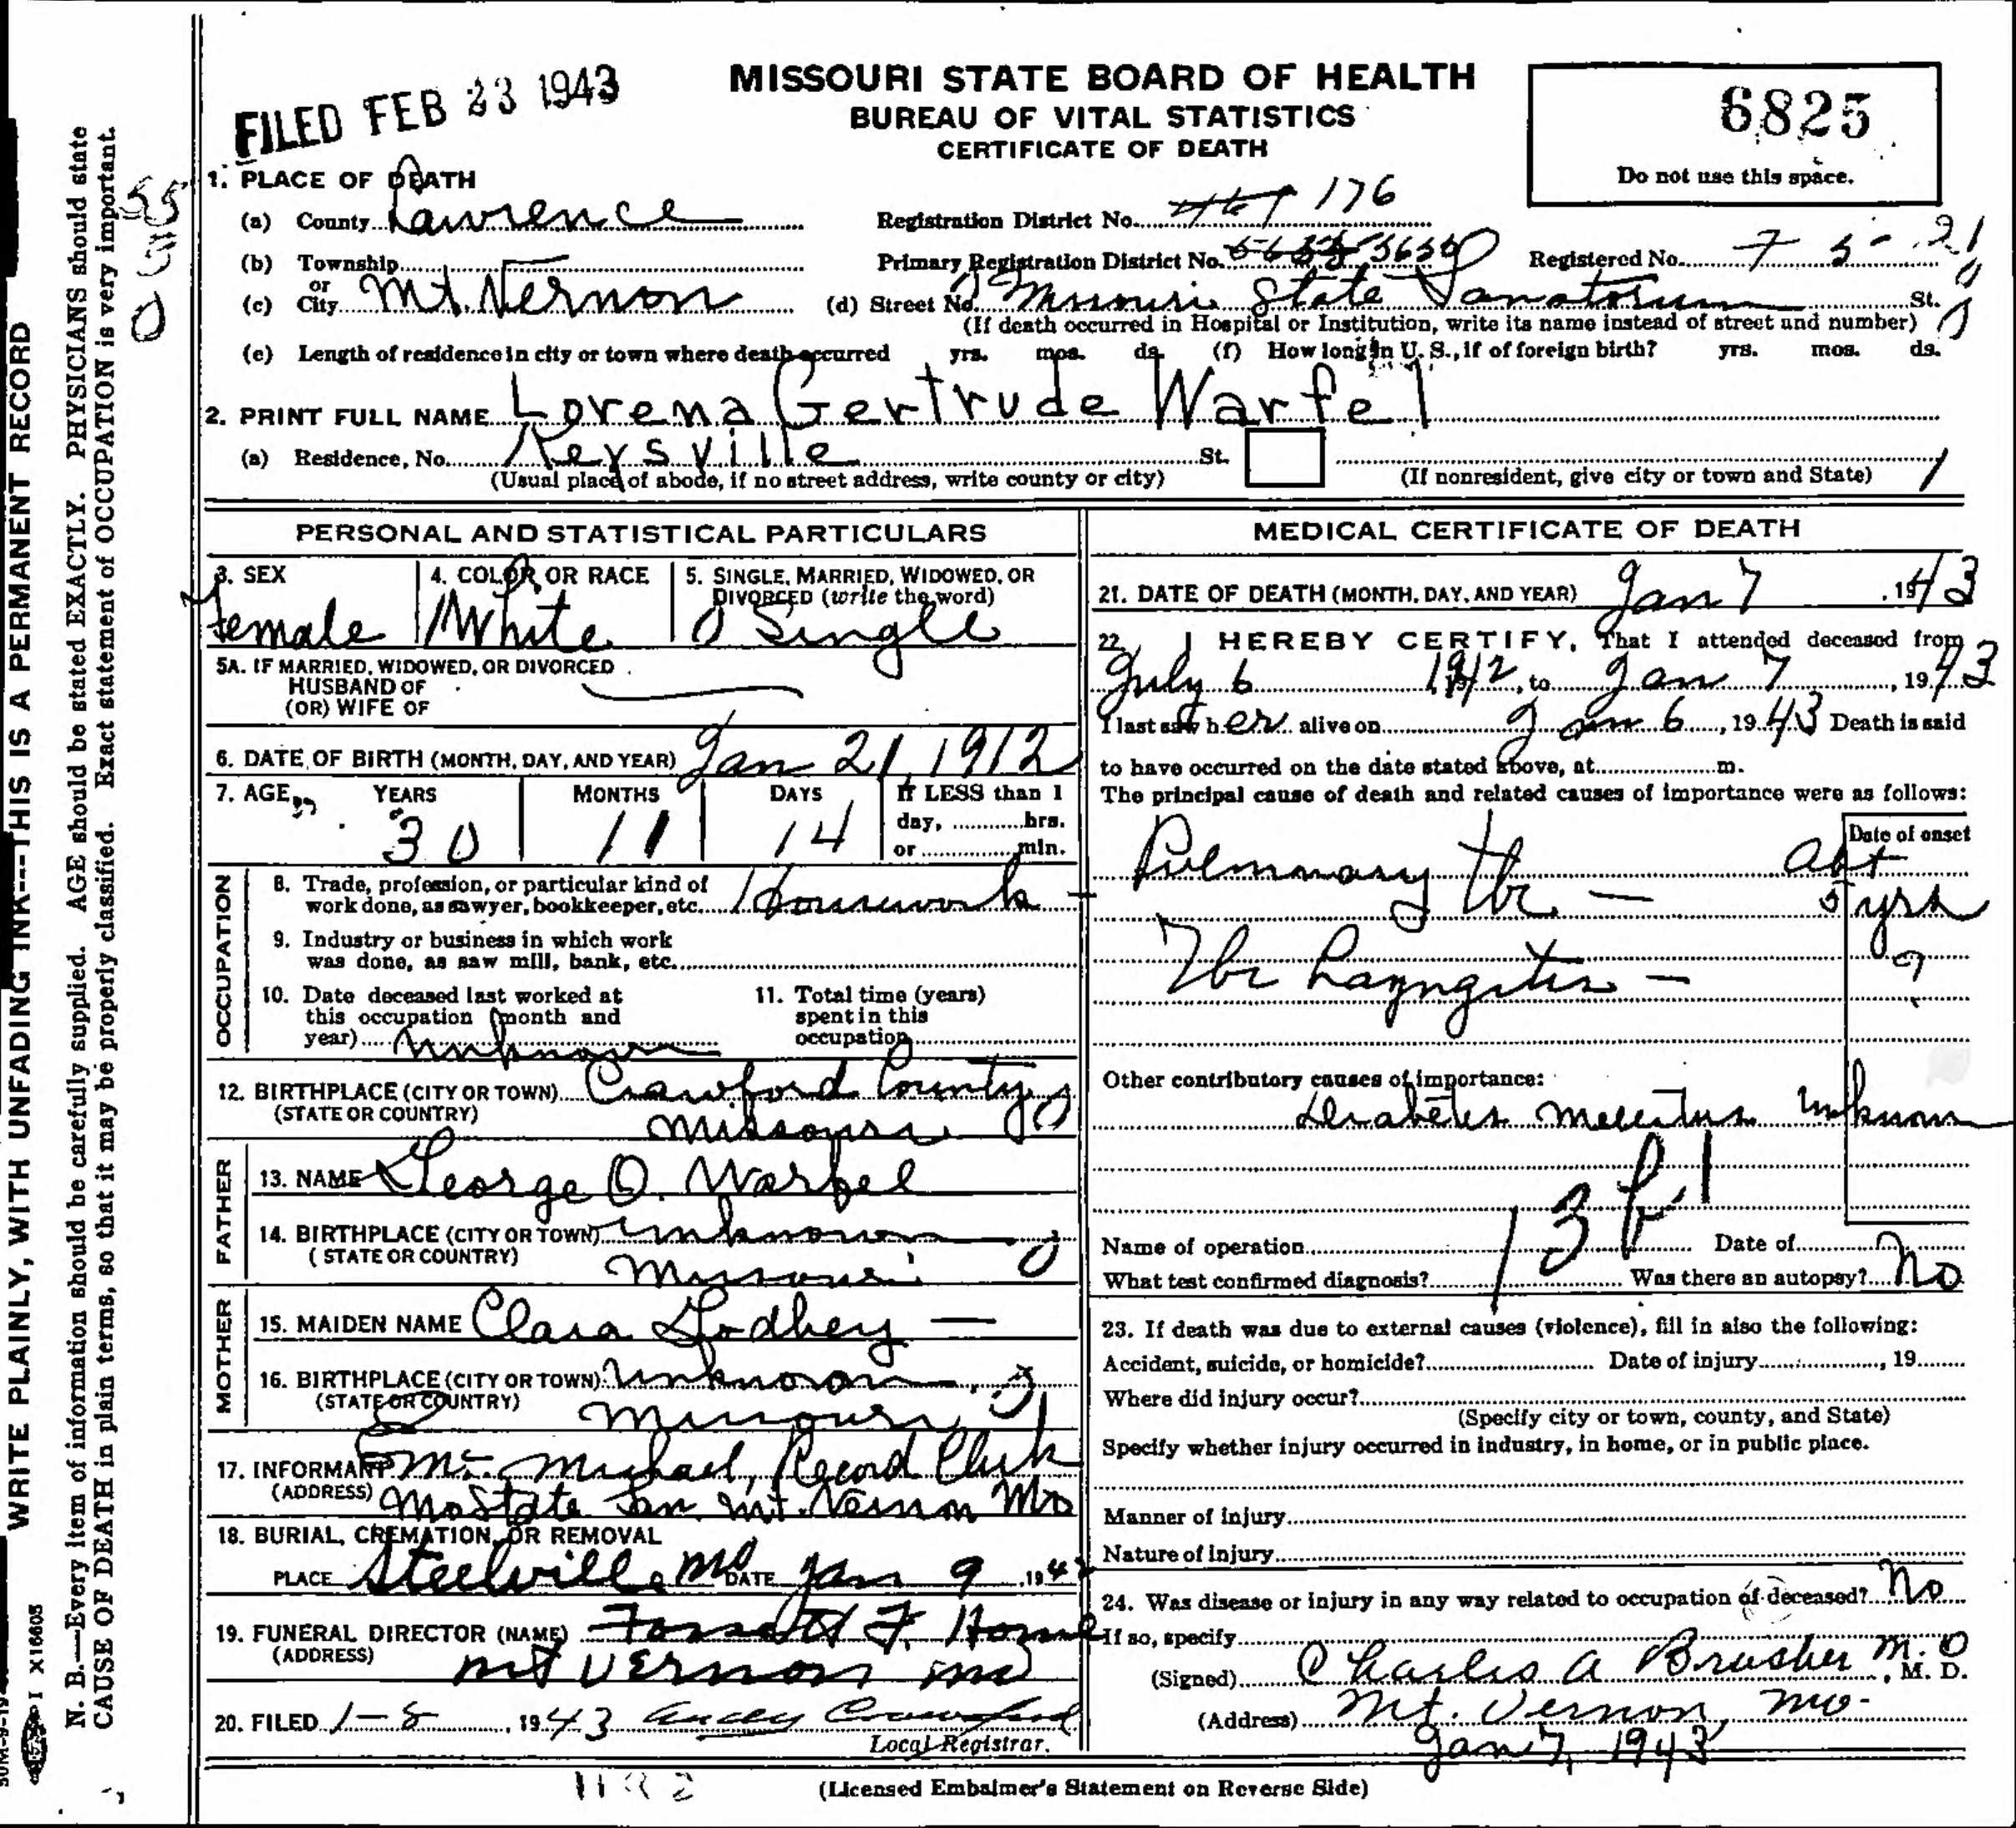 FILED FEB 23 1943
MISSOURI STATE BOARD OF HEALTH
BUREAU OF VITAL STATISTICS
CERTIFICATE OF DEATH
6825
Do not use this space.
1. PLACE OF DEATH
(a) County Lawrence Registration District No. 176
(b) Township Primary Registration District No. Registered No. 7
or
(c) City Mt. Vernon (d) Street No. Missouri State Sanatorium St.
(If death occurred in Hospital or Institution, write its name instead of street and number)
(e) Length of residence in city or town where death occurred yrs. mos. ds. (f) How long in U. S., if of foreign birth? yrs. mos. ds.
2. PRINT FULL NAME Lorena Gertrude Warfel
(a) Residence, No. Keysville St.
(Usual place of abode, if no street address, write county or city) (If nonresident, give city or town and State)
PERSONAL AND STATISTICAL PARTICULARS
3. SEX 4. COLOR OR RACE 5. SINGLE, MARRIED, WIDOWED, OR
DIVORCED (write the word)
Female White Single
5A. IF MARRIED, WIDOWED, OR DIVORCED
HUSBAND OF
(OR) WIFE OF
6. DATE OF BIRTH (MONTH, DAY, AND YEAR) Jan 21, 1912
7. AGE YEARS MONTHS DAYS If LESS than 1
day, hrs.
30 11 14 or min.
OCCUPATION
8. Trade, profession, or particular kind of
work done, as sawyer, bookkeeper, etc. Housework
9. Industry or business in which work
was done, as saw mill, bank, etc.
10. Date deceased last worked at
this occupation (month and
year) unknown
11. Total time (years)
spent in this
occupation
12. BIRTHPLACE (CITY OR TOWN) Crawford County
(STATE OR COUNTRY) Missouri
FATHER
13. NAME George O. Warfel
14. BIRTHPLACE (CITY OR TOWN) unknown
(STATE OR COUNTRY) Missouri
MOTHER
15. MAIDEN NAME Clara Godbey
16. BIRTHPLACE (CITY OR TOWN) unknown
(STATE OR COUNTRY) Missouri
17. INFORMANT Michael, Record Clerk
(ADDRESS) Mo State San Mt. Vernon Mo
18. BURIAL, CREMATION, OR REMOVAL
PLACE Steelville Mo DATE Jan 9, 194
19. FUNERAL DIRECTOR (NAME) Fossett F. Home
(ADDRESS) Mt Vernon Mo
20. FILED 1-8, 1943 Crawford
Local Registrar.
MEDICAL CERTIFICATE OF DEATH
21. DATE OF DEATH (MONTH, DAY, AND YEAR) Jan 7, 1943
22. I HEREBY CERTIFY, That I attended deceased from
July 6 1942, to Jan 7, 1943
I last saw her alive on Jan 6, 1943 Death is said
to have occurred on the date stated above, at m.
The principal cause of death and related causes of importance were as follows:
Date of onset
Pulmonary tbc — abt
5 yrs
Tbc Laryngitis — ?
Other contributory causes of importance:
Diabetes mellitus unknown
13
Name of operation Date of
What test confirmed diagnosis? Was there an autopsy? No
23. If death was due to external causes (violence), fill in also the following:
Accident, suicide, or homicide? Date of injury, 19
Where did injury occur?
(Specify city or town, county, and State)
Specify whether injury occurred in industry, in home, or in public place.
Manner of injury
Nature of injury
24. Was disease or injury in any way related to occupation of deceased? No
If so, specify
(Signed) Charles A Brasher M.D, M. D.
(Address) Mt. Vernon, Mo.
Jan 7, 1943
(Licensed Embalmer's Statement on Reverse Side)
WRITE PLAINLY, WITH UNFADING INK---THIS IS A PERMANENT RECORD
N. B.—Every item of information should be carefully supplied. AGE should be stated EXACTLY. PHYSICIANS should state
CAUSE OF DEATH in plain terms, so that it may be properly classified. Exact statement of OCCUPATION is very important.
I X16605